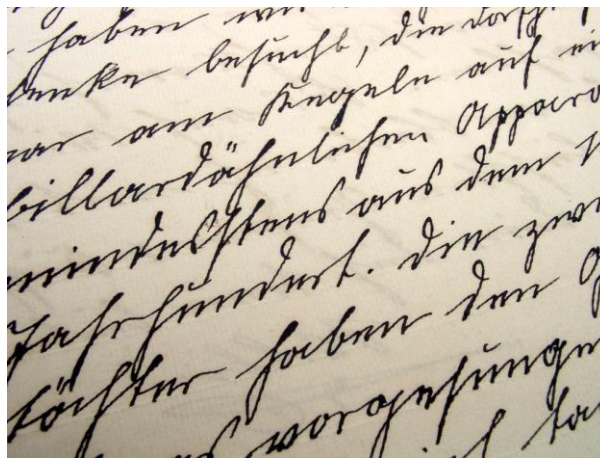 haben wi
besucht, die dorf
war am Kegeln auf ei
billardähnlichen Appara
mindestens aus dem 1
Jahrhundert. Die zwe
töchter haben den G
vorgesunge